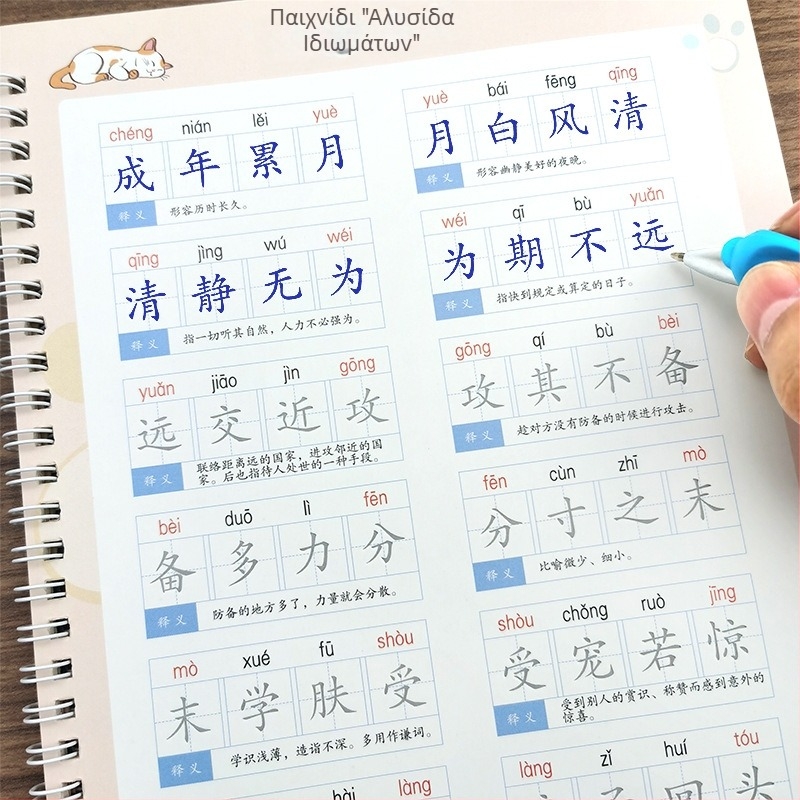 Παιχνίδι "Αλυσίδα
Ιδιωμάτων"
chéng nián lěi yuè
成年累月
释义 形容历时长久。
yuè bái fēng qīng
月白风清
释义 形容幽静美好的夜晚。
qīng jìng wú wéi
清静无为
释义 指一切听其自然，人力不必强为。
wéi qī bù yuǎn
为期不远
释义 指快到规定或算定的日子。
yuǎn jiāo jìn gōng
远交近攻
释义 联络距离远的国家，进攻邻近的国
家。后也指待人处世的一种手段。
gōng qí bù bèi
攻其不备
释义 趁对方没有防备的时候进行攻击。
bèi duō lì fēn
备多力分
释义 防备的地方多了，力量就会分散。
fēn cùn zhī mò
分寸之末
释义 比喻微少、细小。
mò xué fū shòu
末学肤受
释义 学识浅薄，造诣不深。多用作谦词。
shòu chǒng ruò jīng
受宠若惊
释义 受到别人的赏识、称赞而感到意外的
惊喜。
hài làng
làng zǐ huí tóu
子回头